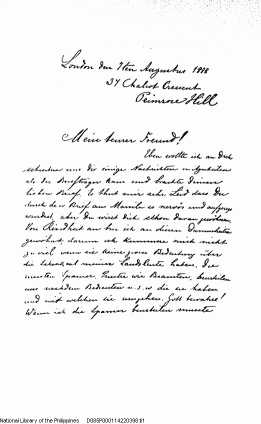 London den 7ten Augustus 1888
37 Chalcot Crescent
Primrose Hill
Mein teurer Freund!
Eben wollte ich an Dich
schreiben um dir einige Nachrichten
als der Briefträger kam und brachte deinen
lieben Brief. Es thut mir sehr Leid dass Du
durch den Brief aus Manila so nervös und aufgeregt
wurdest, aber Du wirst dich schon daran gewöhnen.
Von Kindheit an bin ich an diesen Dummheiten
gewöhnt, darum ich kümmere mich nicht
zu viel, wenn sie keine große Bedeutung über
die meiner Landsleute haben. Die
meisten Spanier, Priester wie Beamten, beurteilen
uns nach den Bedienten u.s.w die sie haben
und mit welchen sie umgehen. Gott bewahre!
Wenn ich die Spanier beurteilen müsste
National Library of the Philippines